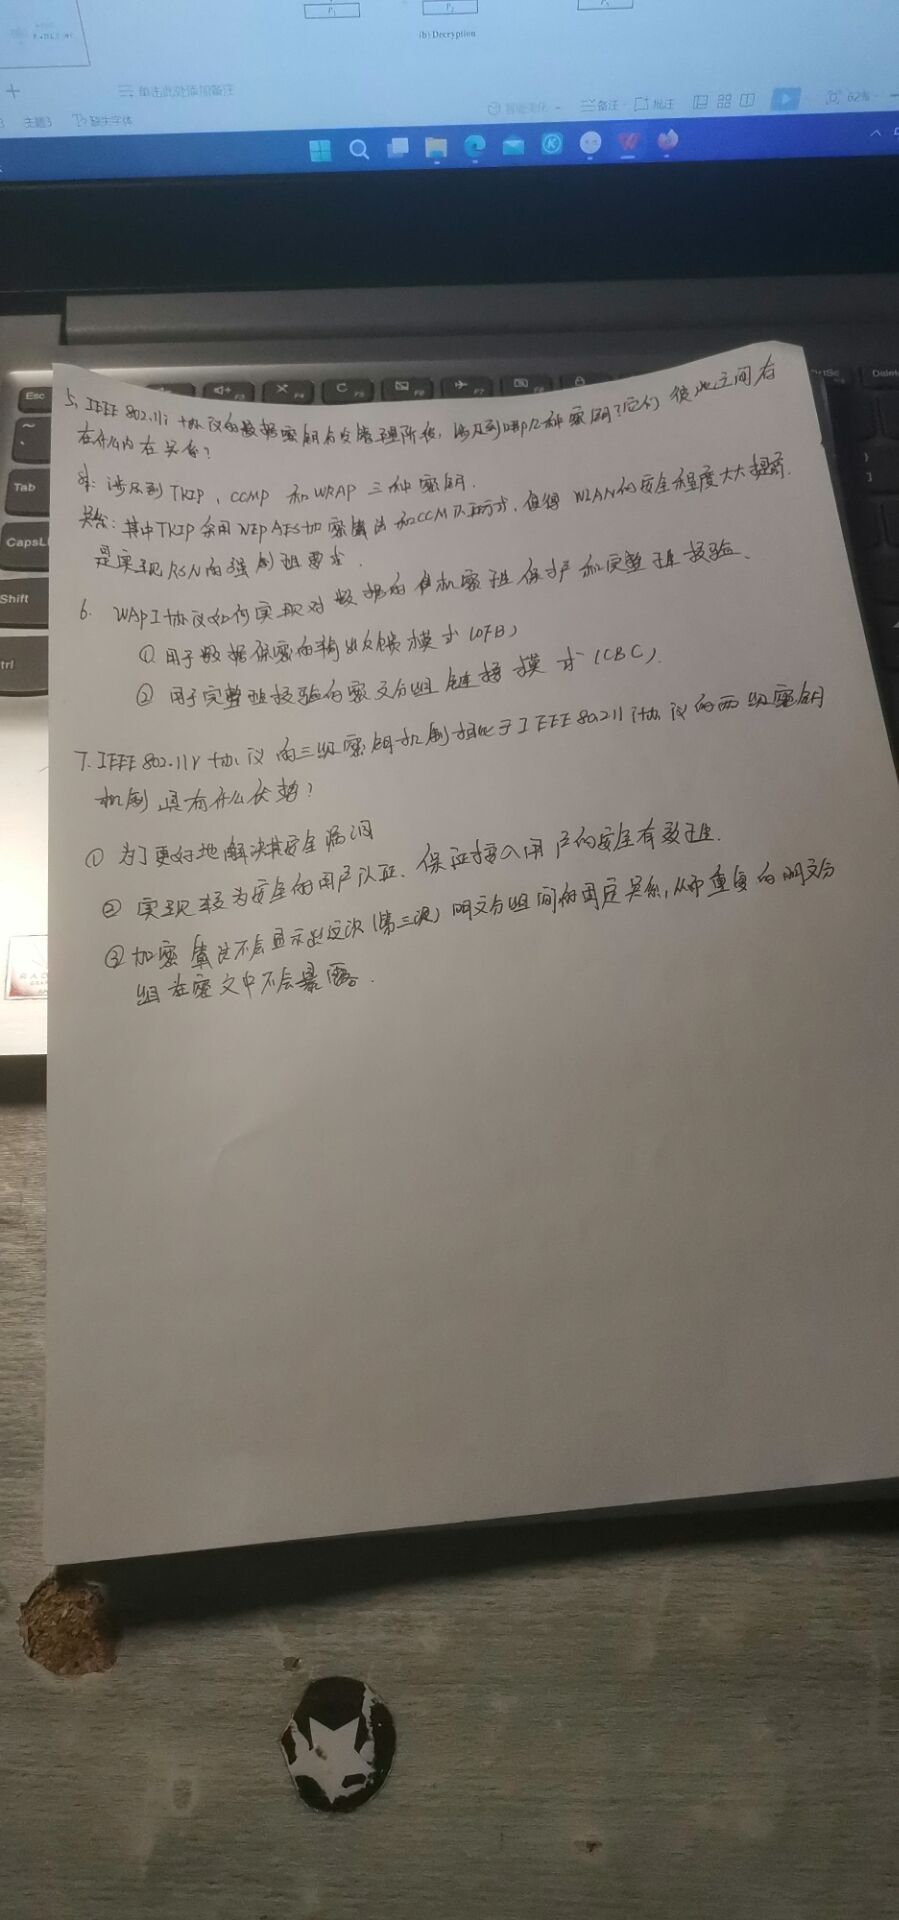 P1
P2
(b) Decryption
单击此处添加备注
主题3 缺失字体
智能美化 备注 批注 62%
Esc
F3 F4 F5 F6 F7 F8
Delete
Tab
CapsL
Shift
trl
5. IEEE 802.11i 协议的数据密钥与分管理阶段,涉及到哪几种密钥?它们彼此之间存
在什么内在关系?
答:涉及到TKIP,CCMP和WRAP三种密钥.
关系:其中TKIP采用WEP AES加密算法和CCM认证方式,使得WLAN的安全程度大大提高.
是实现RSN的强制性要求.
6. WAPI协议如何实现对数据的保密性保护和完整性校验.
① 用于数据保密的输出反馈模式(OFB)
② 用于完整性校验的密文分组链接模式(CBC).
7. IEEE 802.11r协议的三级密钥机制相比于IEEE 80211i协议的两级密钥
机制具有什么优势?
① 为了更好地解决其安全漏洞
② 实现较为安全的用户认证、保证接入用户的安全有效性.
③ 加密算法不会显示出这次(第三次)明文分组间的固定关系,从而重复的明文分
组在密文中不会暴露.